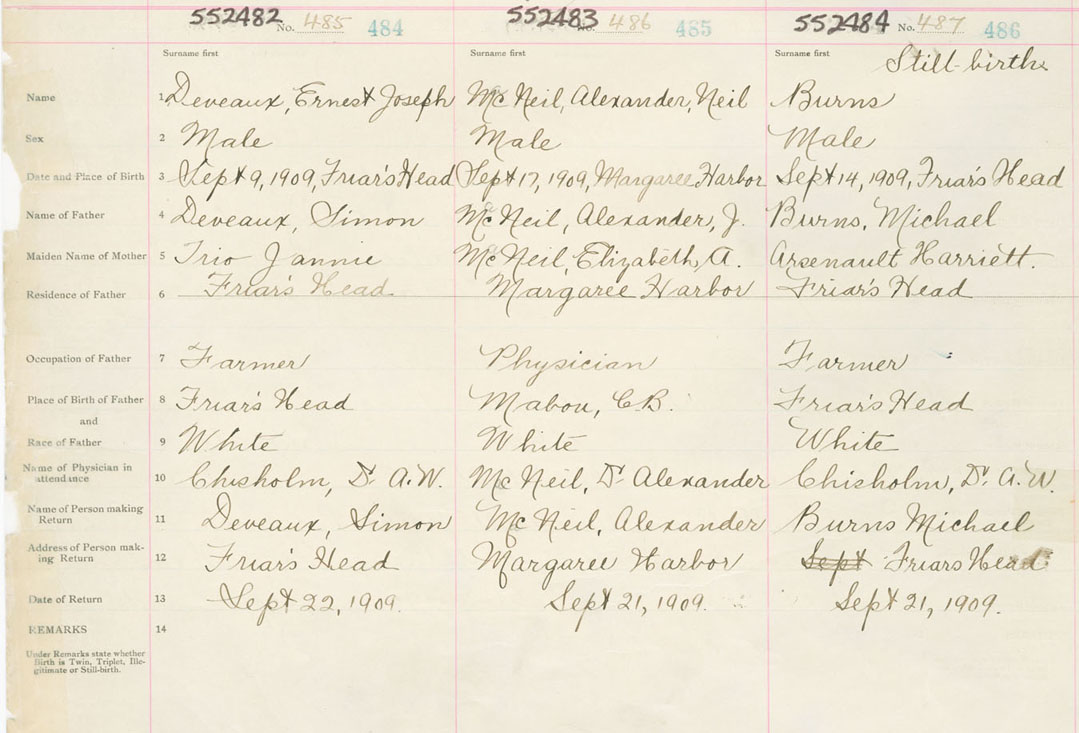 552482 No. 485 484 552483 No. 486 485 552484 No. 487 486
Surname first Surname first Surname first Still-birth
Name 1 Deveaux, Ernest Joseph McNeil, Alexander, Neil Burns
Sex 2 Male Male Male
Date and Place of Birth 3 Sept 9, 1909, Friar's Head Sept 17, 1909, Margaree Harbor Sept 14, 1909, Friar's Head
Name of Father 4 Deveaux, Simon McNeil, Alexander, J. Burns, Michael
Maiden Name of Mother 5 Trio Jannie McNeil, Elizabeth, A. Arsenault Harriett.
Residence of Father 6 Friar's Head Margaree Harbor Friar's Head
Occupation of Father 7 Farmer Physician Farmer
Place of Birth of Father 8 Friar's Head Mabou, C.B. Friar's Head
and
Race of Father 9 White White White
Name of Physician in
attendance 10 Chisholm, Dr A.W. McNeil, Dr Alexander Chisholm, Dr A.W.
Name of Person making
Return 11 Deveaux, Simon McNeil, Alexander Burns Michael
Address of Person mak-
ing Return 12 Friar's Head Margaree Harbor Sept Friars Head
Date of Return 13 Sept 22, 1909. Sept 21, 1909. Sept 21, 1909.
REMARKS 14
Under Remarks state whether
Birth is Twin, Triplet, Ille-
gitimate or Still-birth.